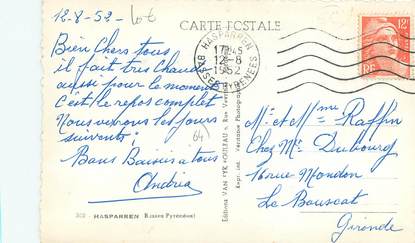 12-8-52-
CARTE POSTALE
HASPARREN
17H45
12-8
1952
BASSES PYRENEES
12F
RF
Bien Chers tous
il fait très chaud
aussi pour le moment
c'est le repos complet
Nous verrons les jours
suivants.
Bons Baisers à tous
Andréa
64
Mr et Mme Raffin
Chez Mr Dubourg
rue Mondon
Le Bouscat
Gironde
Editions VAN EYE
Exp. Véritable Photographie
302 - HASPARREN (Basses Pyrénées)